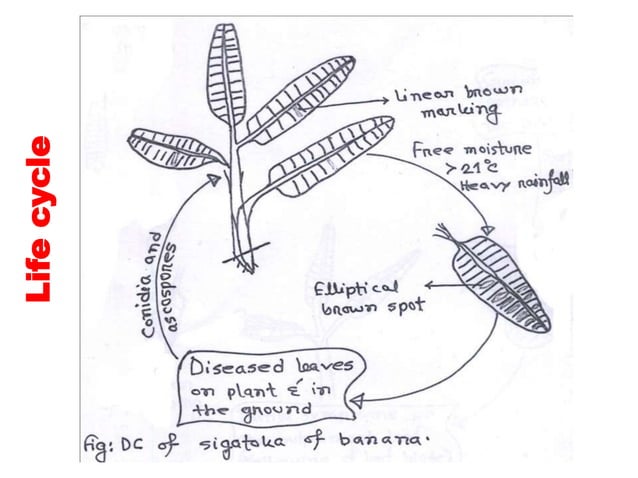 Life cycle
Linear brown
marking
Free moisture
> 21°C
Heavy rainfall
Elliptical
brown spot
Diseased leaves
on plant & in
the ground
Conidia and
ascospores
Fig: DC of sigatoka of banana.